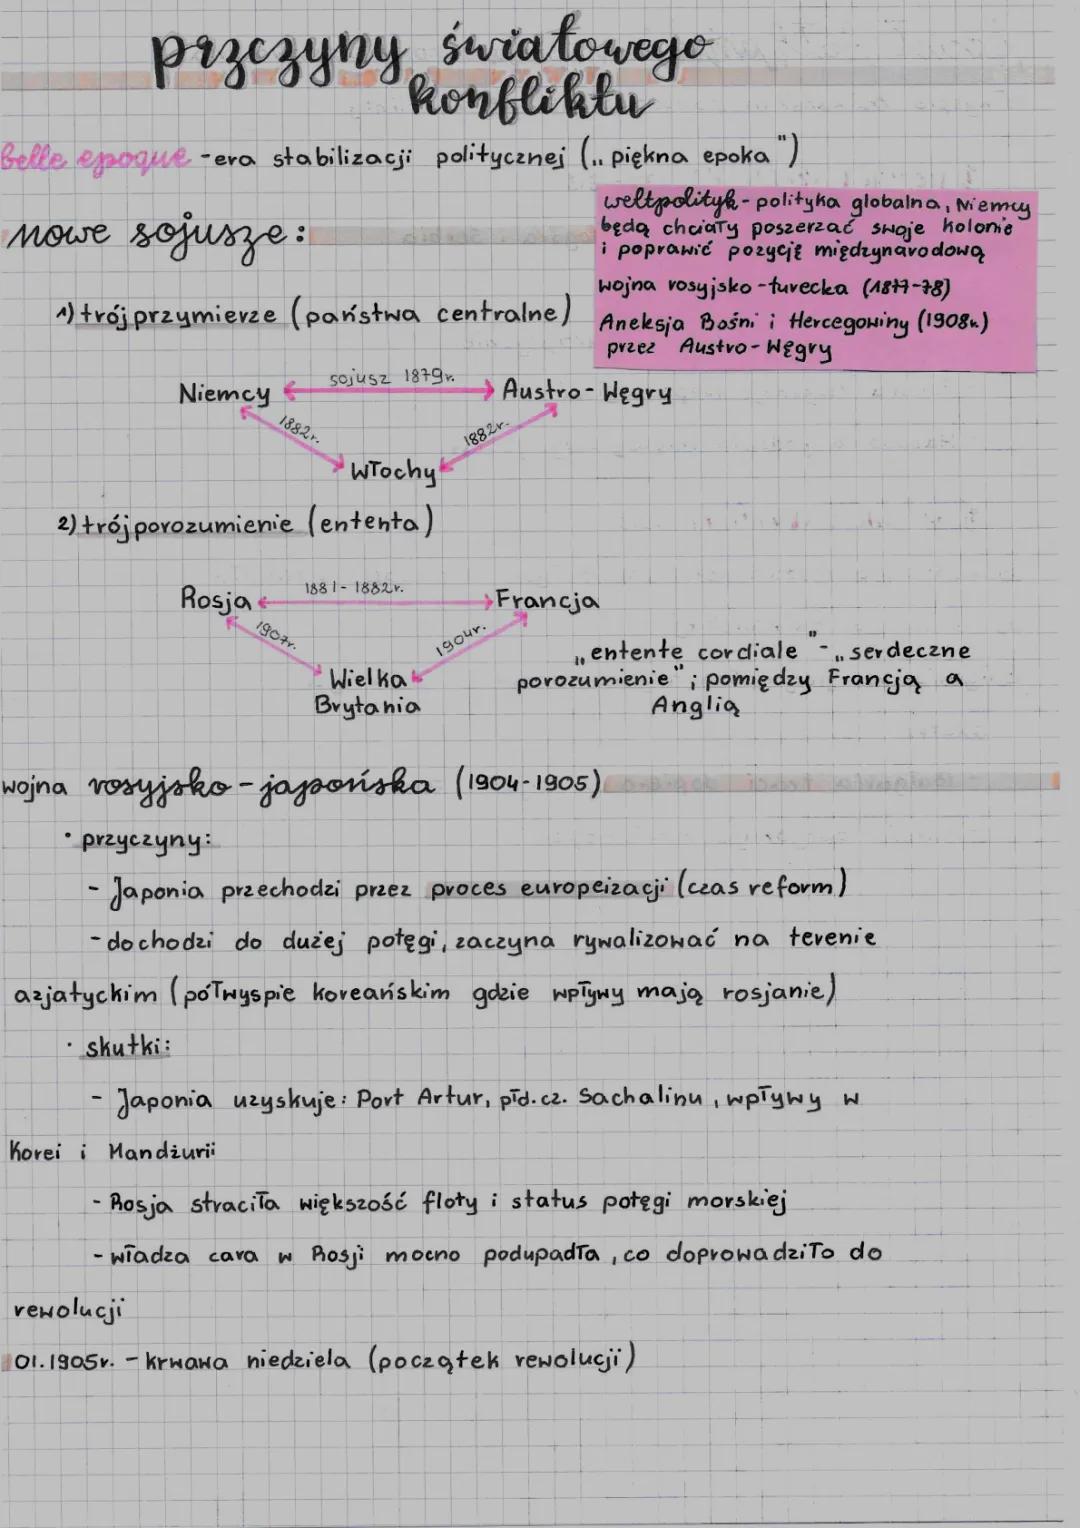 przczyny światowego
konfliktu
belle epoque - era stabilizacji politycznej („piękna epoka")
weltpolityk - polityka globalna, Niemcy
będą chciały poszerzać swoje kolonie
i poprawić pozycję międzynarodową
wojna rosyjsko-turecka (1877-78)
Aneksja Bośni i Hercegowiny (1908r.)
przez Austro-Węgry
nowe sojusze:
1) trójprzymierze (państwa centralne)
Niemcy sojusz 1879r. Austro-Węgry
1882r. 1882r.
Włochy
2) trójporozumienie (ententa)
Rosja 1881-1882r. Francja
1907r. 1904r.
Wielka
Brytania
„entente cordiale" - „serdeczne
porozumienie"; pomiędzy Francją a
Anglią
wojna rosyjsko-japońska (1904-1905)
• przyczyny:
- Japonia przechodzi przez proces europeizacji (czas reform)
- dochodzi do dużej potęgi, zaczyna rywalizować na terenie
azjatyckim (półwyspie koreańskim gdzie wpływy mają rosjanie)
• skutki:
- Japonia uzyskuje: Port Artur, płd. cz. Sachalinu, wpływy w
Korei i Mandżurii
- Rosja straciła większość floty i status potęgi morskiej
- władza cara w Rosji mocno podupadła, co doprowadziło do
rewolucji
01.1905r. - krwawa niedziela (początek rewolucji)